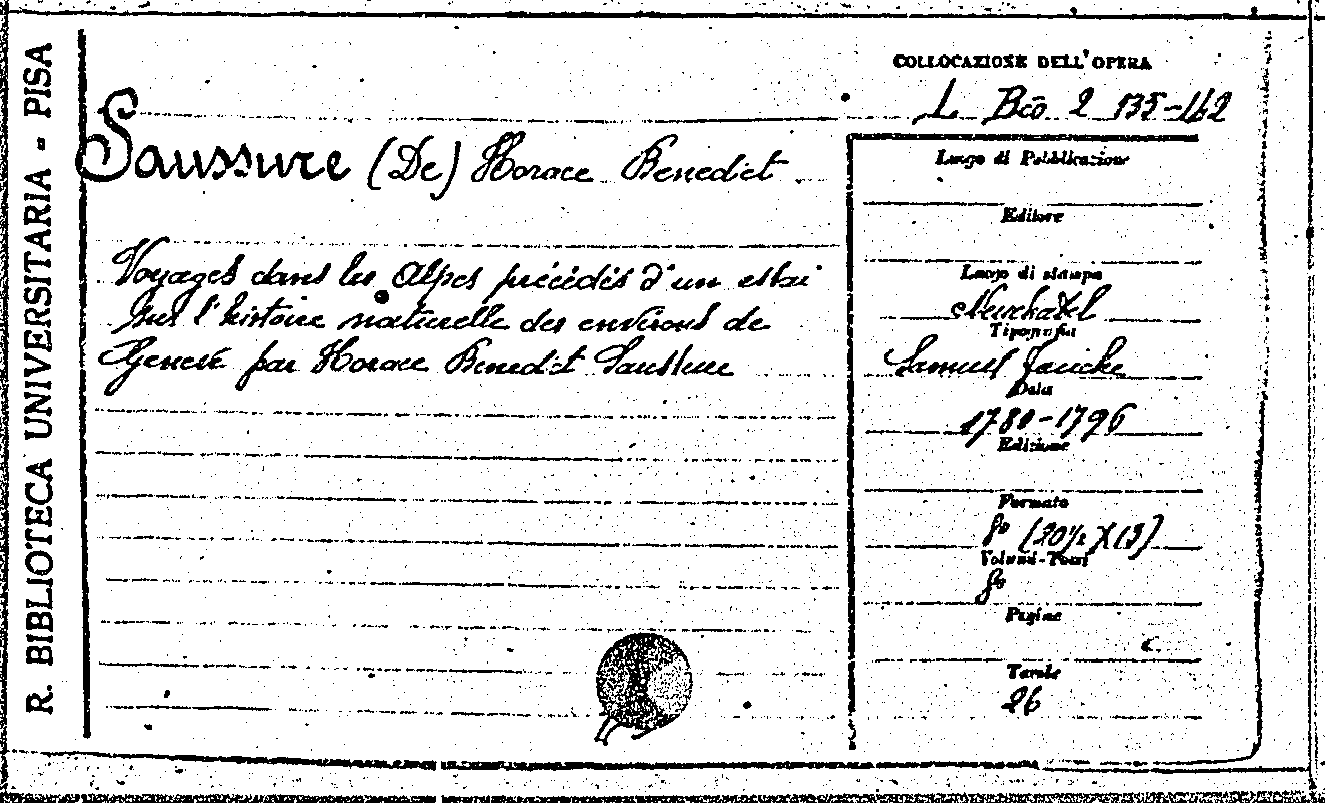 R. BIBLIOTECA UNIVERSITARIA - PISA
COLLOCAZIONE DELL'OPERA
L Bco 2 135-142
Saussure (De) Horace Benedict
Voyages dans les Alpes précédés d'un essai
sur l'histoire naturelle des environs de
Geneve par Horace Benedict Saussure
Luogo di Pubblicazione
Editore
Luogo di stampa
Neuchatel
Tipografia
Samuel Fauche
Data
1780-1796
Edizione
Formato
8° (20½ X 13)
Volumi-Tomi
8°
Pagine
Tavole
26